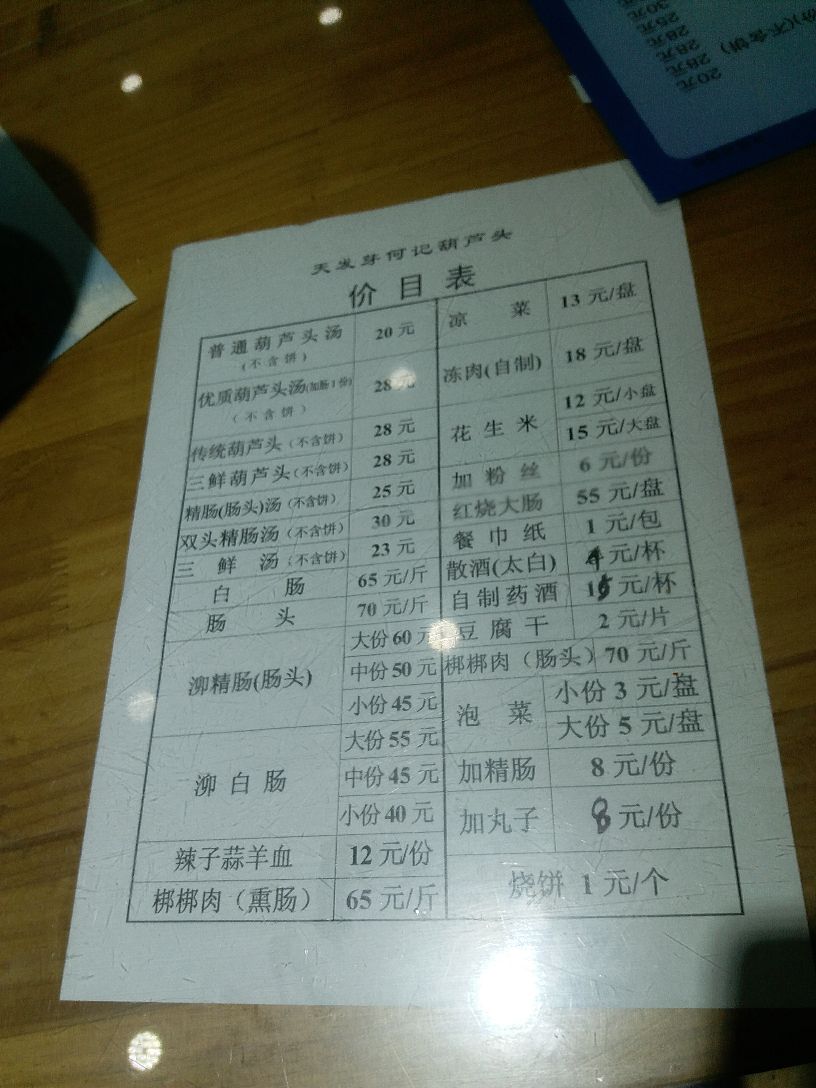 天发芽何记葫芦头
价目表
普通葫芦头汤 20元
(不含饼)
优质葫芦头汤(加肠1份) 28元
(不含饼)
传统葫芦头(不含饼) 28元
三鲜葫芦头(不含饼) 28元
精肠(肠头)汤(不含饼) 25元
双头精肠汤(不含饼) 30元
三鲜汤(不含饼) 23元
白肠 65元/斤
肠头 70元/斤
泖精肠(肠头) 大份60元
中份50元
小份45元
泖白肠 大份55元
中份45元
小份40元
辣子蒜羊血 12元/份
梆梆肉（熏肠） 65元/斤
凉菜 13元/盘
冻肉(自制) 18元/盘
花生米 12元/小盘
15元/大盘
加粉丝 6元/份
红烧大肠 55元/盘
餐巾纸 1元/包
散酒(太白) 4元/杯
自制药酒 15元/杯
豆腐干 2元/片
梆梆肉（肠头） 70元/斤
泡菜 小份3元/盘
大份5元/盘
加精肠 8元/份
加丸子 8元/份
烧饼 1元/个
份)(不含饼)
30元
25元
28元
28元
28元
20元